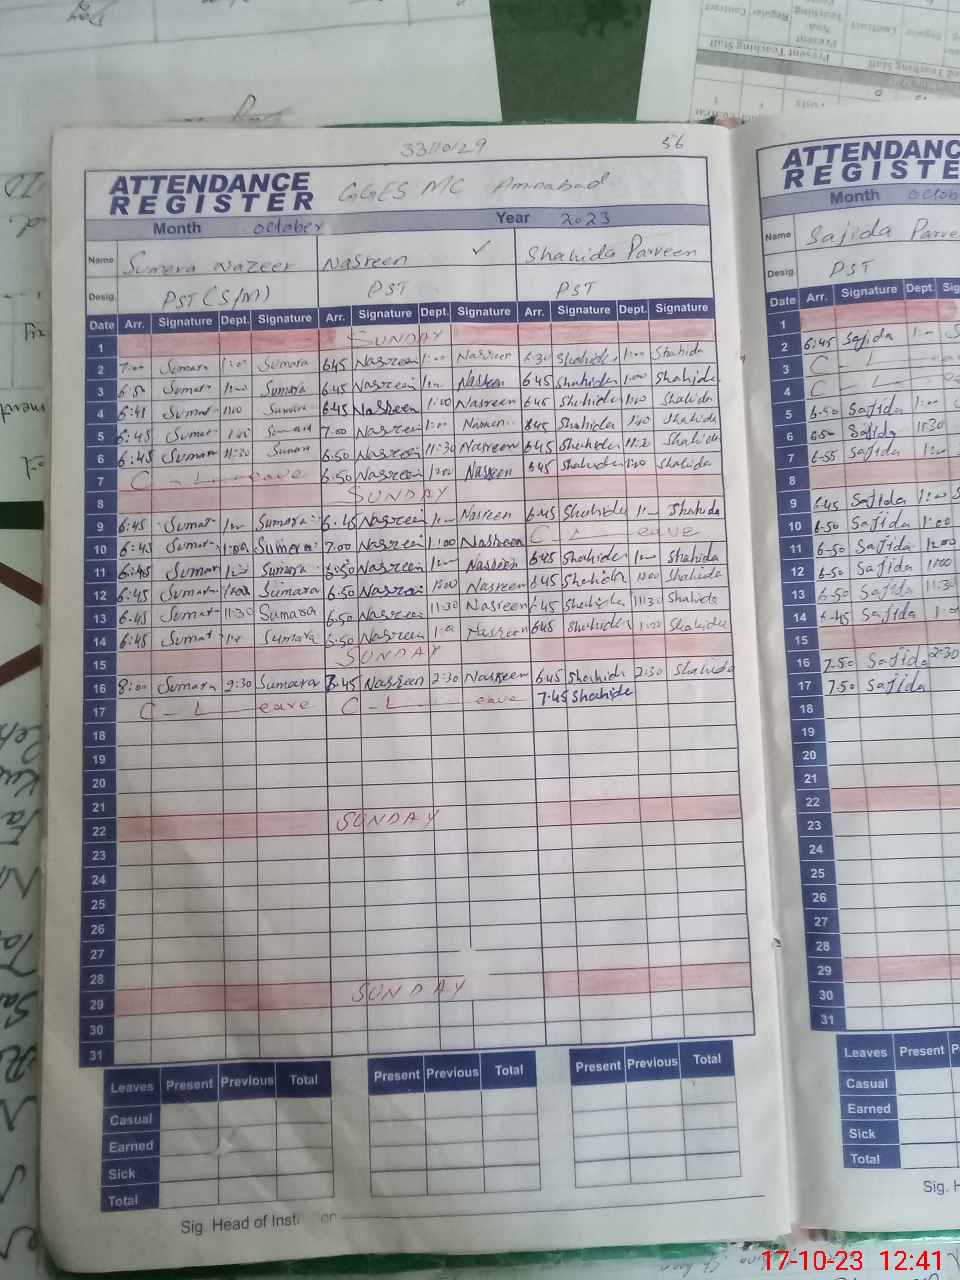 33110129 56
ATTENDANCE REGISTER GGES MC Aminabad
Month october Year 2023
Name Sumera Nazeer Nasreen ✓ Shahida Parveen
Desig. PST (S/M) PST PST
Date Arr. Signature Dept. Signature Arr. Signature Dept. Signature Arr. Signature Dept. Signature
1 SUNDAY
2 7:00 Sumara 1:00 Sumara 6:45 Nasreen 1:00 Nasreen 6:30 Shahida 1:00 Shahida
3 6:50 Sumara 1:00 Sumara 6:45 Nasreen 1:00 Nasreen 6:45 Shahida 1:00 Shahida
4 6:41 Sumara 1:00 Sumara 6:45 Nasreen 1:00 Nasreen 6:45 Shahida 1:00 Shahida
5 6:45 Sumara 1:00 Sumara 7:00 Nasreen 1:00 Nasreen 6:45 Shahida 1:00 Shahida
6 6:45 Sumara 11:30 Sumara 6:50 Nasreen 11:30 Nasreen 6:45 Shahida 11:30 Shahida
7 C - L - eave 6:50 Nasreen 1:00 Nasreen 6:45 Shahida 1:00 Shahida
8 SUNDAY
9 6:45 Sumara 1:00 Sumara 6:45 Nasreen 1:00 Nasreen 6:45 Shahida 1:00 Shahida
10 6:45 Sumara 1:00 Sumera 7:00 Nasreen 1:00 Nasreen C - L eave
11 6:45 Sumara 1:00 Sumara 6:50 Nasreen 1:00 Nasreen 6:45 Shahida 1:00 Shahida
12 6:45 Sumara 1:00 Sumara 6:50 Nasreen 1:00 Nasreen 6:45 Shahida 1:00 Shahida
13 6:45 Sumara 11:30 Sumara 6:50 Nasreen 11:30 Nasreen 6:45 Shahida 11:30 Shahida
14 6:45 Sumara 1:00 Sumara 6:50 Nasreen 1:00 Nasreen 6:45 Shahida 1:00 Shahida
15 SUNDAY
16 8:00 Sumara 2:30 Sumara 7:45 Nasreen 2:30 Nasreen 6:45 Shahida 2:30 Shahida
17 C - L - eave C - L - eave 7:45 Shahida
18
19
20
21
22 SUNDAY
23
24
25
26
27
28
29 SUNDAY
30
31
Leaves Present Previous Total Present Previous Total Present Previous Total
Casual
Earned
Sick
Total
Sig. Head of Insti on
ATTENDANC
REGISTE
Month octob
Name Sajida Parve
Desig. PST
Date Arr. Signature Dept. Sig
1
2 6:45 Sajida 1:00 S
3 C - L - eave
4 C - L -
5 6:50 Sajida 1:00
6 6:50 Sajida 11:30
7 6:55 Sajida 1:00
8
9 6:45 Sajida 1:00
10 6:50 Sajida 1:00
11 6:50 Sajida 1:00
12 6:50 Sajida 1:00
13 6:50 Sajida 11:30
14 6:45 Sajida 1:00
15
16 7:50 Sajida 2:30
17 7:50 Sajida
18
19
20
21
22
23
24
25
26
27
28
29
30
31
Leaves Present P
Casual
Earned
Sick
Total
Sig. H
17-10-23 12:41